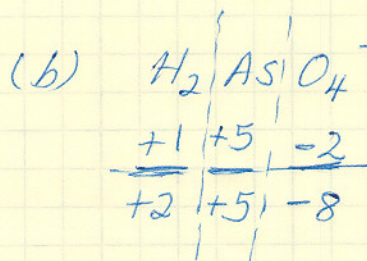 (b) H₂ | As | O₄⁻
+1 | +5 | -2
+2 | +5 | -8